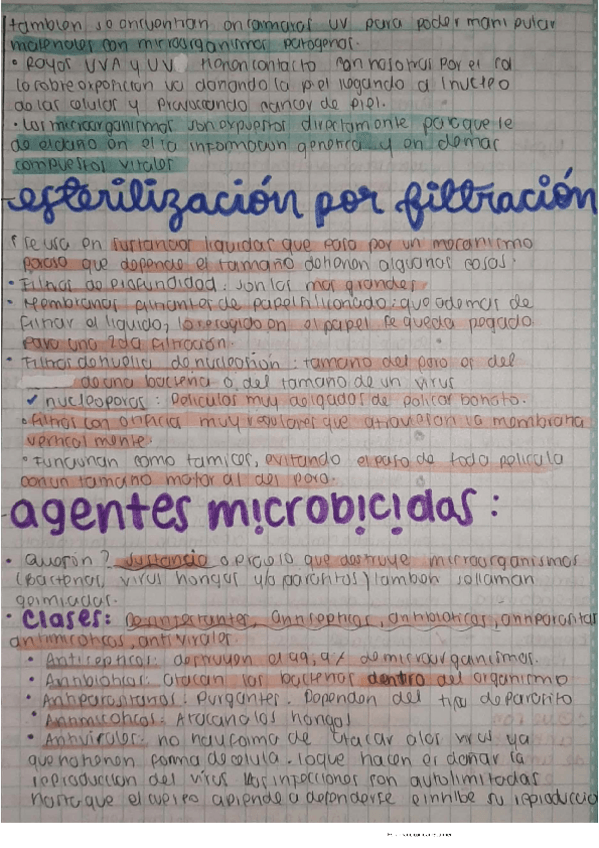 también se encuentran en camaras UV para poder manipular
materiales con microorganismos patogenos.
• Rayos UVA y UV tienen contacto con nosotros por el sol
la sobre exposicion va dañando la piel llegando al nucleo
de las celulas y provocando cancer de piel.
• Los microorganismos son expuestos directamente para que le
de el daño en el la informacion genetica y en demas
compuestos vitales
esterilización por filtración
se usa en sustancias liquidas que pasa por un mecanismo
poroso que depende el tamaño detienen algunas cosas.
• Filtros de profundidad: son los mas grandes
• Membranas filtrantes de papel siliconado: que ademas de
filtrar el liquido, lo recogido en el papel se queda pegado
para una 2da filtracion.
• Filtros de huella de nucleación: tamaño del poro es del
de una bacteria o del tamaño de un virus
✓ nucleoporos: Peliculas muy delgadas de policarbonato.
• Filtros con orificios muy regulares que atraviesan la membrana
verticalmente.
• Funcionan como tamices, evitando el paso de toda pelicula
con un tamaño mayor al del poro.
agentes microbicidas:
• Que son? Sustancia o proceso que destruye microorganismos
(bacterias, virus hongos y/o parasitos) tambien se llaman
germicidas.
• Clases: Desinfectantes, Antisepticos, antibioticos, antiparasitar
antimicoticos, antivirales.
• Antisepticos: destruyen el 99,9% de microorganismos.
• Antibioticos: atacan las bacterias dentro del organismo
• Antiparasitarios: Purgantes. Dependen del tipo de parasito
• Antimicoticos: Atacan a los hongos
• Antivirales: no hay forma de atacar a los virus ya
que no tienen forma de celula. lo que hacen es dañar la
reproduccion del virus las infecciones son autolimitadas
hasta que el cuerpo aprende a defenderse e inhibe su reproduccio